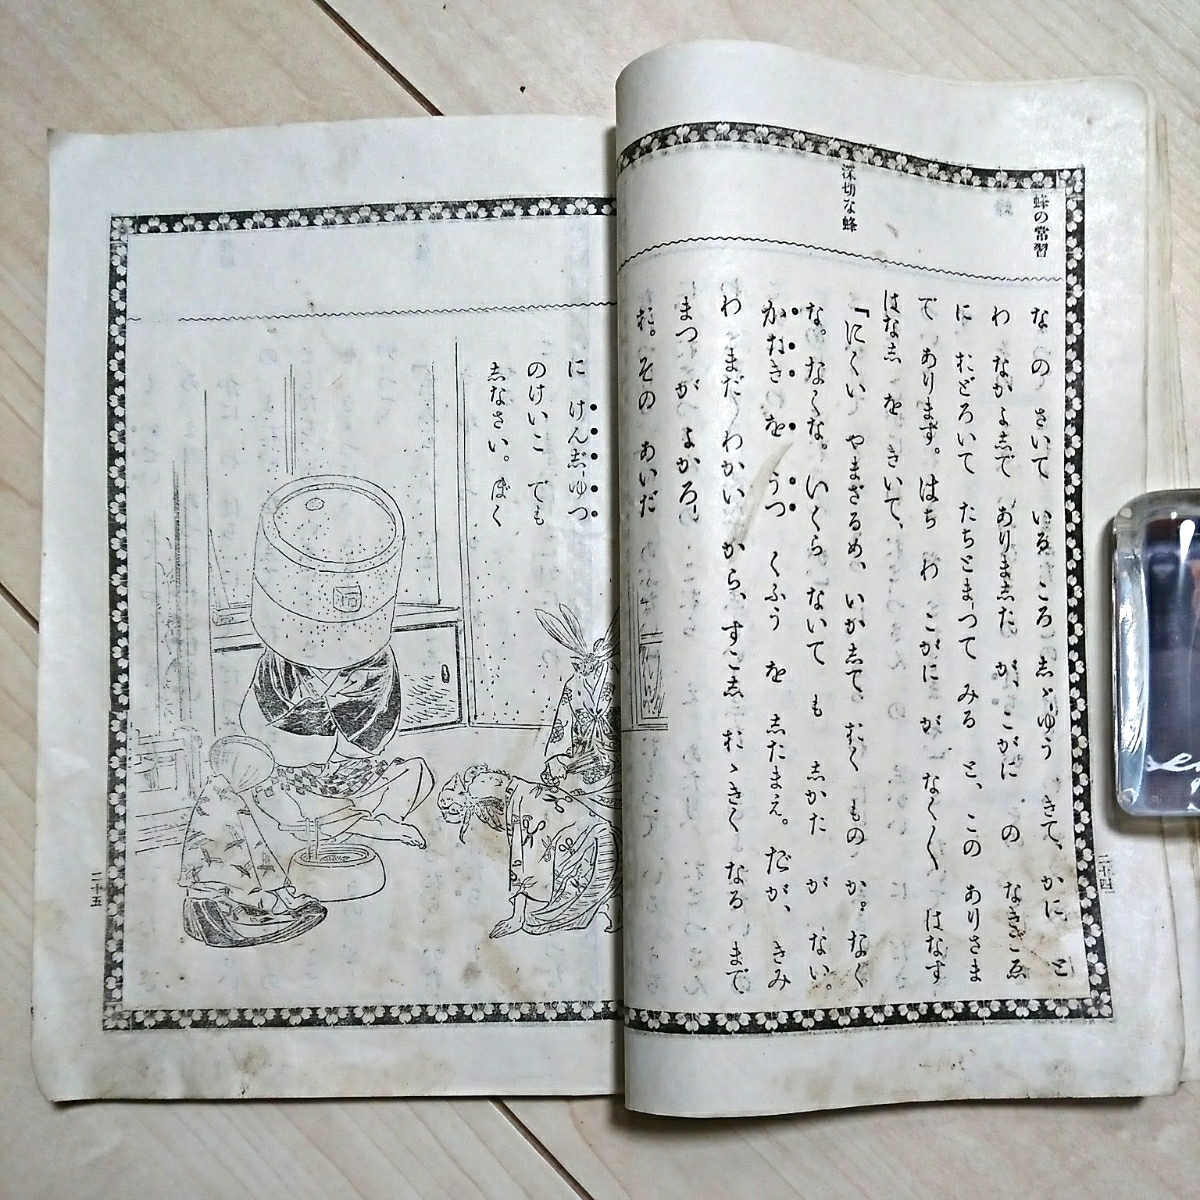 蜂の常習
深切な蜂
なの さいて いる ころ 志ゝゆう きて、かに と
わ なかよ志で ありま志た が、こがに の なきごゑ
に おどろいて たちとまつて みる と、この ありさま
で あります。はち わ こがに が なく〳〵 はなす
はな志 を きいて、
「にくい やまざるめ、いか志て おく もの か。なく
な。なくな。いくら ないて も 志かた が ない。
かたき を うつ くふう を 志たまえ。だが、きみ
わ まだ〳〵わかい から、すこ志 おゝきく なる まで、
まつ が よかろー
お。その あいだ
に けん志゛ゆつ
のけいこ でも
志なさい。ぼく
二十四
二十五